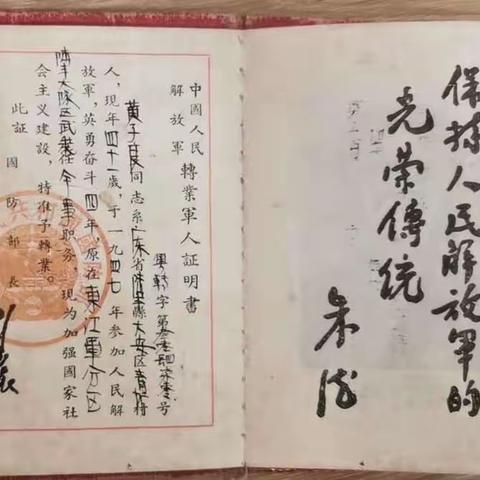 保持人民解放軍的
光荣傳统
朱德
中國人民
解放軍
轉業軍人証明書
粤轉字第号
黄子良同志系广东省陆丰縣大安区
人，現年四十一歲，于一九四七年參加人民解
放軍，英勇奋斗四年，原在東江軍分区
陆丰大队区武装任干事职务，現为加强國家社
会主义建設，特准予轉業。
此証
國防部長